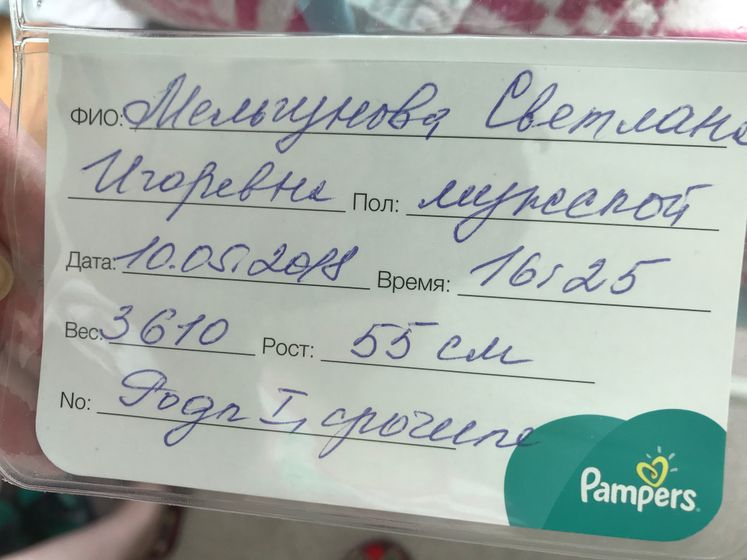 ФИО: Мельгунова Светлана
Игоревна Пол: мужской
Дата: 10.05.2018 Время: 16:25
Вес: 3610 Рост: 55 см
No: Роды I, срочные
Pampers